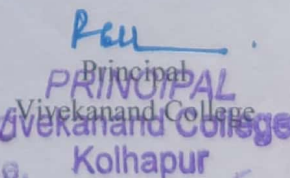 Principal
PRINCIPAL
Vivekanand College
Vivekanand College
Kolhapur